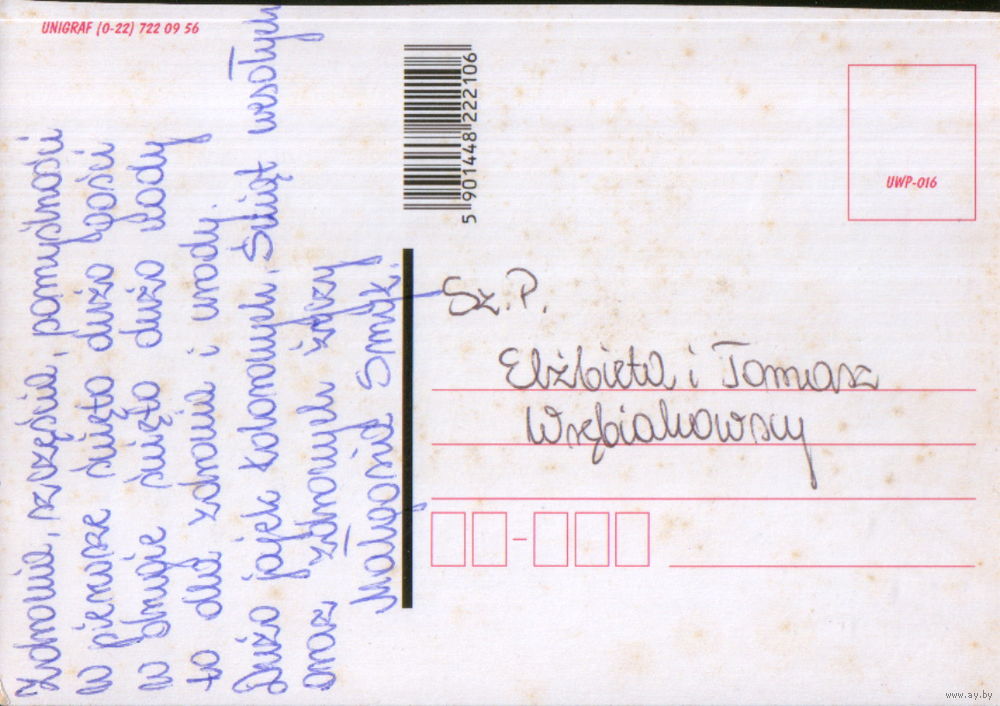 UNIGRAF (0-22) 722 09 56
Zdrowia, szczęścia, pomyślności
w pierwsze święto dużo gości
w drugie święto dużo wody
to dla zdrowia i urody.
Dużo jajek kolorowych, Świąt wesołych
oraz zdrowych życzy
Małgosia Smyk.
5 901448 222106
UWP-016
Sz. P.
Elżbieta i Tomasz
www.ay.by